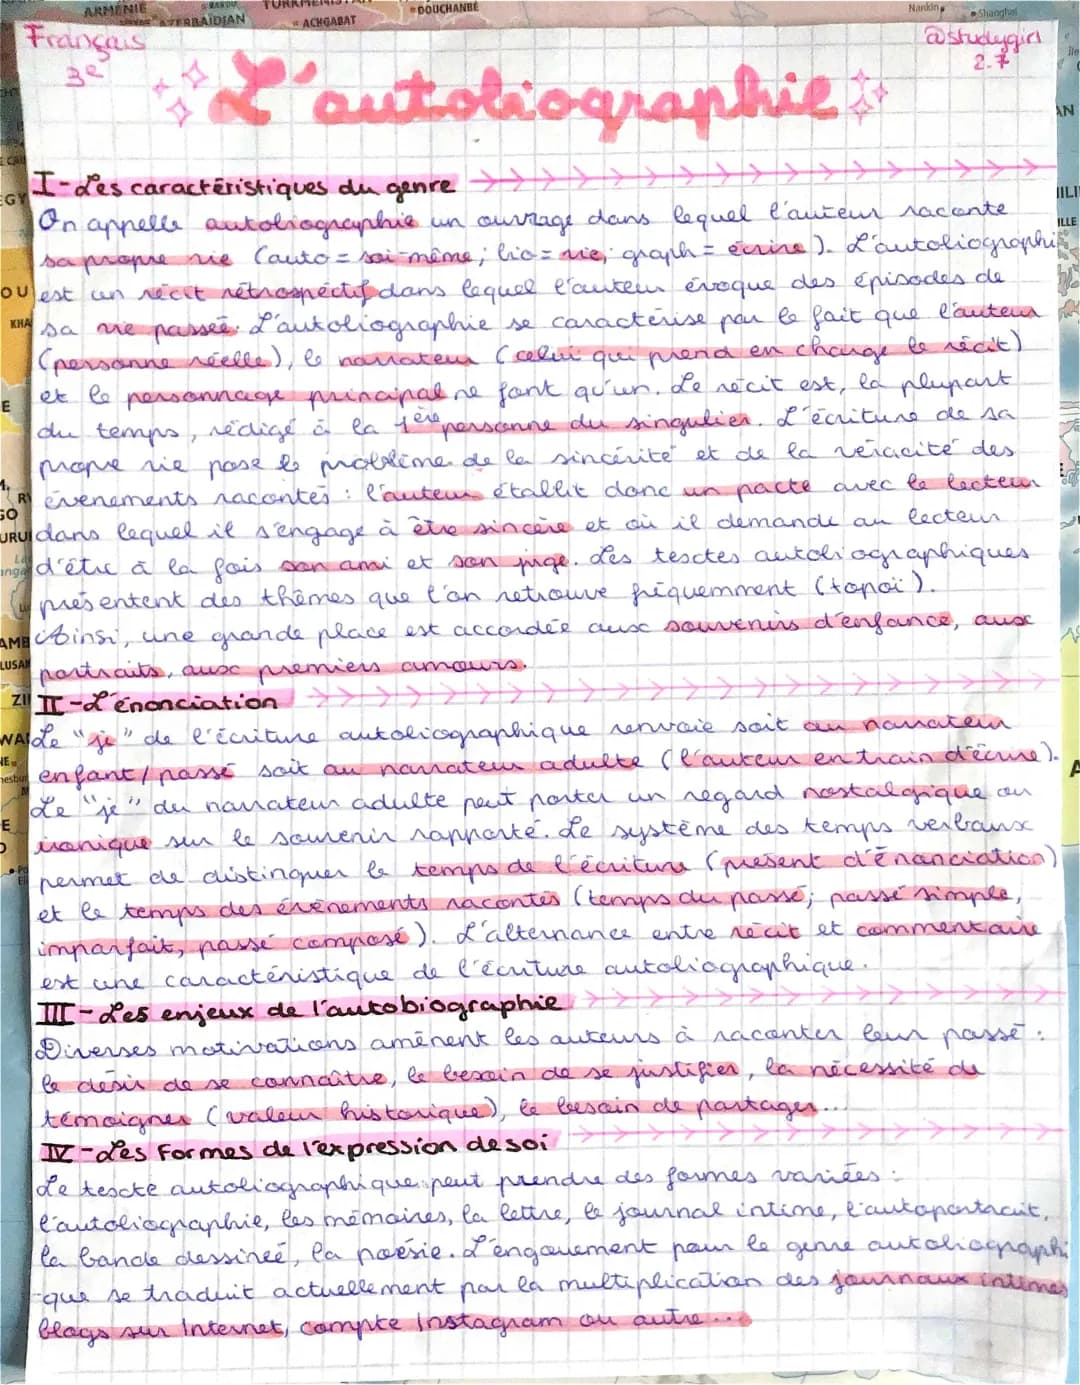 ARMÉNIE
BAKOU
AZERBAÏDJAN
ACHGABAT
DOUCHANBÉ
Nankin
Shanghai
Français
3e
@studygirl
2.7
L'autobiographie
I-Les caractéristiques du genre
On appelle autobiographie un ouvrage dans lequel l'auteur raconte
sa propre vie (auto = soi-même; bio = vie; graph = écrire). L'autobiographie
est un récit rétrospectif dans lequel l'auteur évoque des épisodes de
sa vie passée. L'autobiographie se caractérise par le fait que l'auteur
(personne réelle), le narrateur (celui qui prend en charge le récit)
et le personnage principal ne font qu'un. Le récit est, la plupart
du temps, rédigé à la 1ère personne du singulier. L'écriture de sa
propre vie pose le problème de la sincérité et de la véracité des
évenements racontés : l'auteur établit donc un pacte avec le lecteur
dans lequel il s'engage à être sincère et où il demande au lecteur
d'être à la fois son ami et son juge. Les textes autobiographiques
présentent des thèmes que l'on retrouve fréquemment (topoï).
Ainsi, une grande place est accordée aux souvenirs d'enfance, aux
portraits, aux premiers amours.
II-L'énonciation
Le "je" de l'écriture autobiographique renvoie soit au narrateur
enfant/passé soit au narrateur adulte (l'auteur en train d'écrire).
Le "je" du narrateur adulte peut porter un regard nostalgique ou
ironique sur le souvenir rapporté. Le système des temps verbaux
permet de distinguer le temps de l'écriture (présent d'énonciation)
et le temps des événements racontés (temps du passé; passé simple,
imparfait, passé composé). L'alternance entre récit et commentaire
est une caractéristique de l'écriture autobiographique.
III-Les enjeux de l'autobiographie
Diverses motivations amènent les auteurs à raconter leur passé :
le désir de se connaître, le besoin de se justifier, la nécessité de
témoigner (valeur historique), le besoin de partager...
IV-Les formes de l'expression de soi
Le texte autobiographique peut prendre des formes variées :
l'autobiographie, les mémoires, la lettre, le journal intime, l'autoportrait,
la bande dessineé, la poésie. L'engouement pour le genre autobiographi
-que se traduit actuellement par la multiplication des journaux intimes
blogs sur Internet, compte Instagram ou autre...